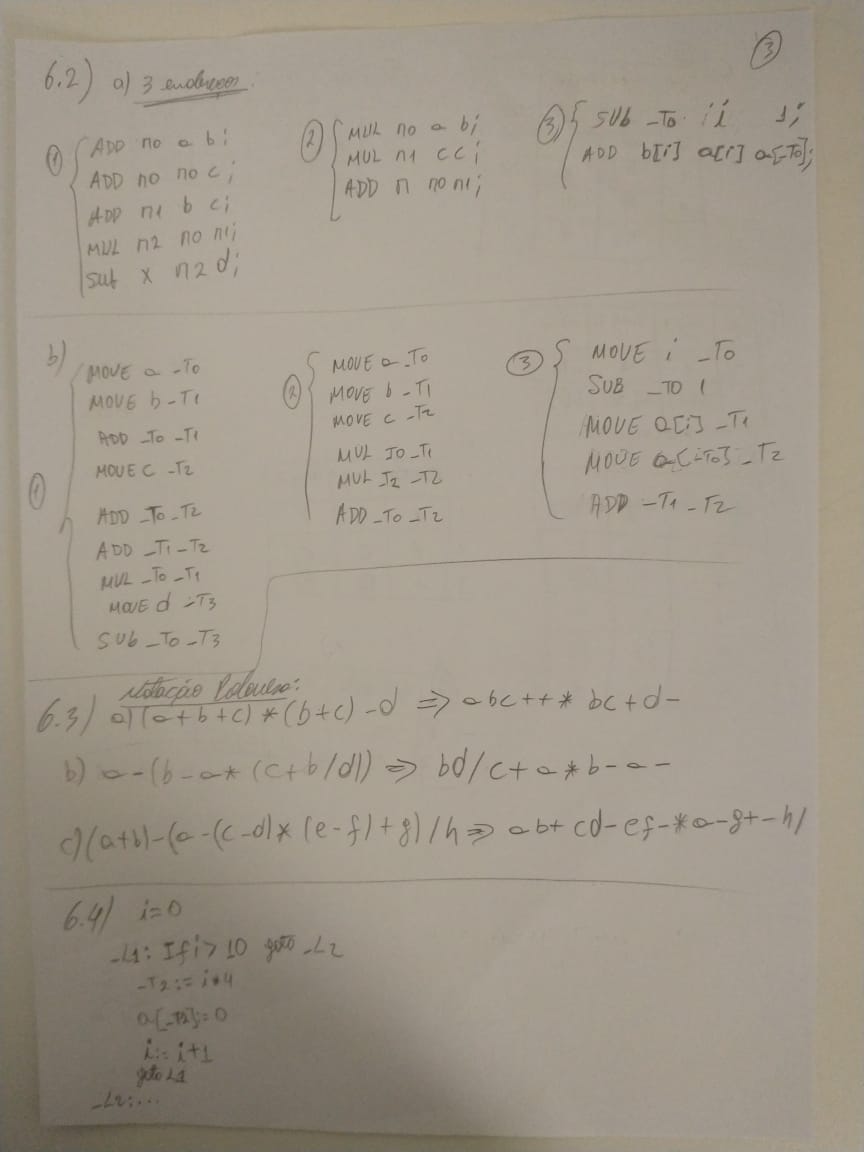 3
6.2) a) 3 endereços:
1 ADD n0 a b;
ADD n0 n0 c;
ADD n1 b c;
MUL n2 n0 n1;
SUB x n2 d;
2 MUL n0 a b;
MUL n1 c c;
ADD n n0 n1;
3 SUB _T0 i 1;
ADD b[i] a[i] a[_T0];
b)
1 MOVE a _T0
MOVE b _T1
ADD _T0 _T1
MOVE C _T2
ADD _T0 _T2
ADD _T1 _T2
MUL _T0 _T1
MOVE d _T3
SUB _T0 _T3
2 MOVE a _T0
MOVE b _T1
MOVE c _T2
MUL _T0 _T1
MUL _T2 _T2
ADD _T0 _T2
3 MOVE i _T0
SUB _T0 1
MOVE a[i] _T1
MOVE a[_T0] _T2
ADD _T1 _T2
6.3) Notação Polonesa:
a) (a+b+c)*(b+c)-d => abc++* bc+d-
b) a-(b-a*(c+b/d)) => bd/c+a*b-a-
c) (a+b)-(a-(c-d)*(e-f)+g)/h => ab+ cd-ef-*a-g+-h/
6.4) i=0
_L1: If i>10 goto _L2
_T2:= i*4
a[_T2]:=0
i:= i+1
goto L1
_L2:...